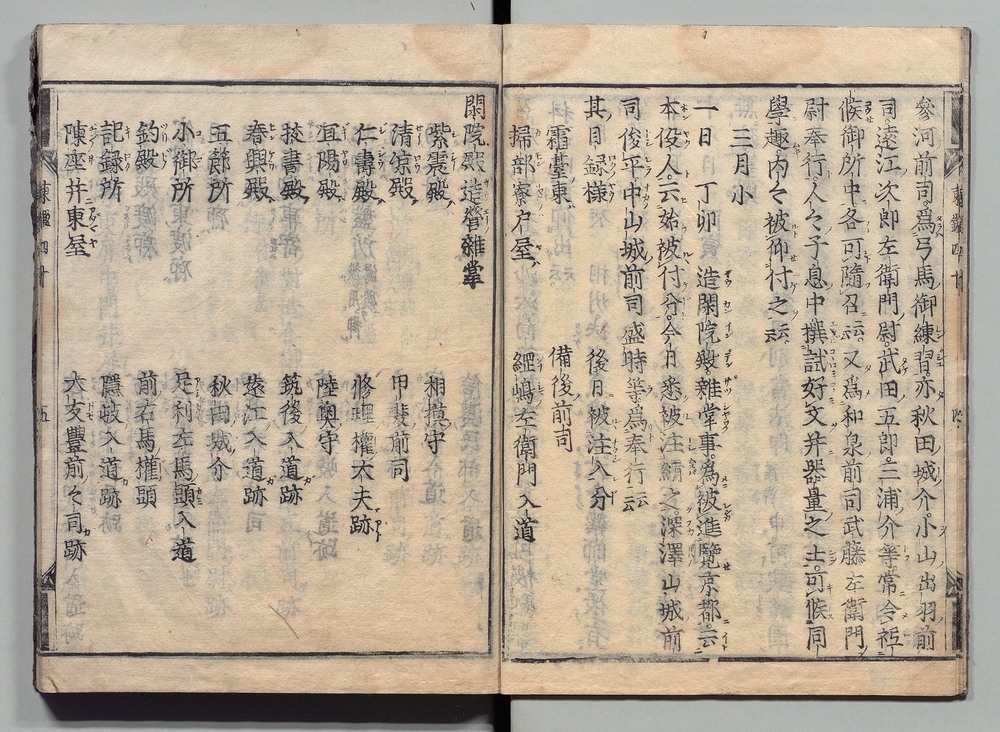 參河前司爲弓馬御練習亦秋田城介小山出羽前
司遠江次郎左衛門尉武田五郎三浦介等常令祗
候御所中各可隨召云云又爲和泉前司武藤左衛門
尉奉行人々子息中撰試好文并器量之士可候同
學趣内々被仰付之云云
三月小
一日 丁卯 造閑院殿雜掌事爲被進覽京都云云
本役人云始被付分今日悉被注緝之深澤山城前
司俊平中山城前司盛時等爲奉行云云
其目録樣 後日被注入分
霜臺東 備後前司
掃部寮戸屋 纒嶋左衛門入道
閑院殿造營雜掌
紫宸殿 相摸守
清凉殿 甲斐前司
仁壽殿 修理權大夫跡
宜陽殿 陸奥守
挍書殿 筑後入道跡
春興殿 遠江入道跡
五節所 秋田城介
小御所 足利左馬頭入道
釣殿 前右馬權頭
記録所 隱岐入道跡
陳座并東屋 大友豐前々司跡
東鑑四十 四
東鑑四十 五